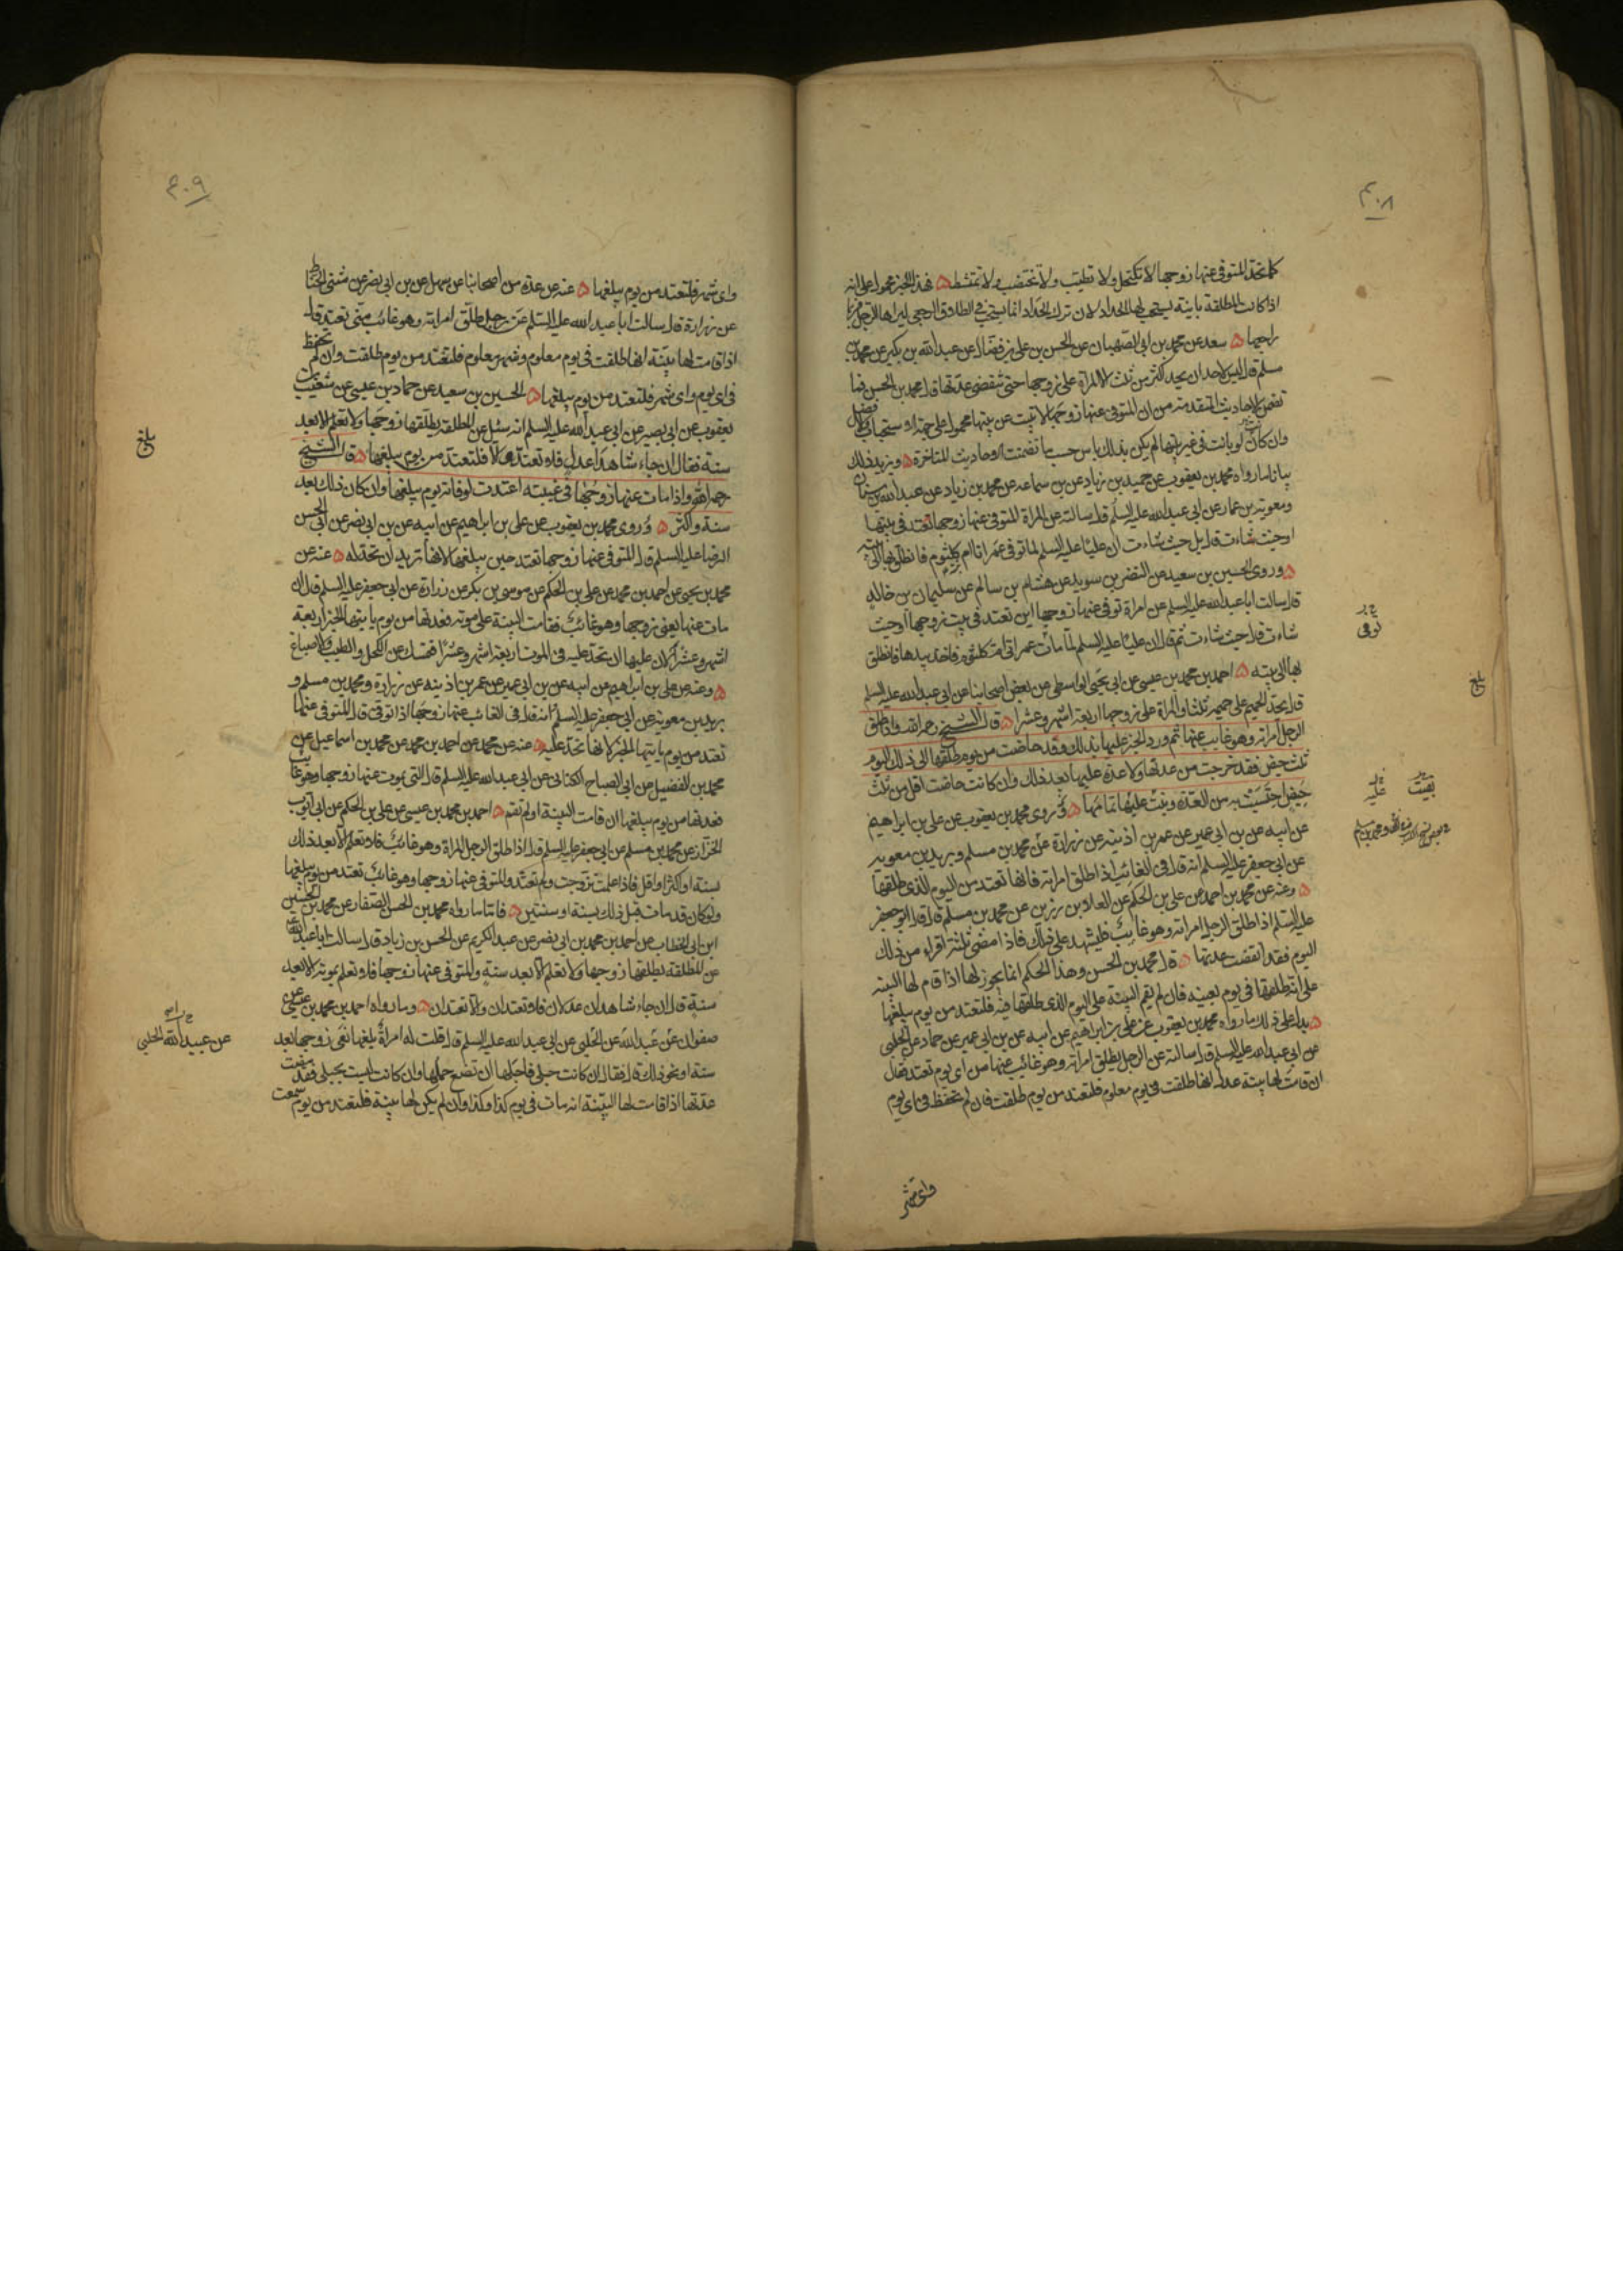 ۴۰۸
كما تحد المتوفى عنها زوجها لا تكتحل ولا تطيب ولا تختضب ولا تمتشط ۵ فهذا الخبر محمول على انه
اذا كانت المطلقة باينة يستحب لها الحداد لان ترك الحداد انما يستحب في الطلاق الرجعي ليراها الرجل فربما
راجعها ۵ سعد عن محمد بن ابي الصهبان عن الحسن بن علي بن فضال عن عبد الله بن بكير عن محمد بن
مسلم قال ليس لاحد ان يحد اكثر من ثلث الا المراة على زوجها حتى تنقضى عدتها قال محمد بن الحسن فما
تضمن الاحاديث المتقدمة من ان المتوفى عنها زوجها لا تبت عن بيتها محمول على جهة الاستحباب
وان كان لو باتت في غير بيتها لم يكن بذلك باس حسب ما تضمنته الاحاديث المتاخرة ۵ ويزيد ذلك
بيانا ما رواه محمد بن يعقوب عن حميد بن زياد عن بن سماعه عن محمد بن زياد عن عبد الله بن سنان
ومعوية بن عمار عن ابي عبد الله عليه السلم قال سالته عن المراة المتوفى عنها زوجها تعتد في بيتها
او حيث شاءت قال بل حيث شاءت ان عليا عليه السلم لما توفى عمر اتا ام كلثوم فانطلق بها الى بيته
۵ وروى الحسين بن سعيد عن النضر بن سويد عن هشام بن سالم عن سليمان بن خالد
قال سالت ابا عبد الله عليه السلم عن امراة توفى عنها زوجها اين تعتد في بيت زوجها او حيث
شاءت قال حيث شاءت ثم قال ان عليا عليه السلم لما مات عمر اتى ام كلثوم فاخذ بيدها فانطلق
بها الى بيته ۵ احمد بن محمد بن عيسى عن ابي يحيى الواسطي عن بعض اصحابنا عن ابي عبد الله عليه السلم
قال يحد الحميم على حميمه ثلثا والمراة على زوجها اربعة اشهر وعشرا ۵ قال الشيخ رحمه الله واذا طلق
الرجل امراته وهو غايب عنها ثم ورد الخبر عليها بذلك وقد حاضت من يوم طلقها الى ذلك اليوم
ثلث حيض فقد خرجت من عدتها ولا عدة عليها بعد ذلك وان كانت حاضت اقل من ثلث
حيض احتسبت به من العدة وبنت عليها تمامها ۵ روى محمد بن يعقوب عن علي بن ابراهيم
عن ابيه عن بن ابي عمير عن عمر بن اذينه عن زرارة عن محمد بن مسلم وبريد بن معويه
عن ابي جعفر عليه السلم انه قال في الغائب اذا طلق امراته فانها تعتد من اليوم الذي طلقها
۵ وعنه عن محمد بن احمد عن علي بن الحكم عن العلا بن رزين عن محمد بن مسلم قال قال ابو جعفر
عليه السلم اذا طلق الرجل امراته وهو غايب فليشهد على ذلك فاذا مضى ثلثة اقراء من ذلك
اليوم فقد انقضت عدتها ۵ قال محمد بن الحسن وهذا الحكم انما يجوز لها اذا قام لها البينه
على انه طلقها في يوم بعينه فان لم يقم البينة على اليوم الذي طلقها فيه فلتعتد من يوم يبلغها
۵ يدل على ذلك ما رواه محمد بن يعقوب عن علي بن ابراهيم عن ابيه عن بن ابي عمير عن حماد عن الحلبي
عن ابي عبد الله عليه السلم قال سالته عن الرجل يطلق امراته وهو غائب عنها من اي يوم تعتد فقال
ان قامت لها بينة عدل انها طلقت في يوم معلوم فلتعتد من يوم طلقت فان لم تحفظ في اي يوم
واى شهر
توفى
بلغ
بقيت
عليه
۴۰۹
واى شهر فلتعتد من يوم يبلغها ۵ عنه عن عدة من اصحابنا عن سهل عن بن ابي نصر عن مثنى الحناط
عن زرارة قال سالت ابا عبد الله عليه السلم عن رجل طلق امراته وهو غائب متى تعتد قال
اذا قامت لها بينة انها طلقت في يوم معلوم وشهر معلوم فلتعتد من يوم طلقت وان لم تحفظ
في اي يوم واى شهر فلتعتد من يوم يبلغها ۵ الحسين بن سعيد عن حماد بن عيسى عن شعيب بن
يعقوب عن ابي بصير عن ابي عبد الله عليه السلم انه سئل عن المطلقة يطلقها زوجها ولا تعلم الا بعد
سنة فقال ان جاء شاهدا عدل فلا تعتد والا فلتعتد من يوم يبلغها ۵ قال الشيخ
رحمه الله واذا مات عنها زوجها في غيبته اعتدت لوفاته يوم يبلغها وان كان ذلك بعد
سنة واكثر ۵ روى محمد بن يعقوب عن علي بن ابراهيم عن ابيه عن بن ابي نصر عن ابي الحسن
الرضا عليه السلم قال المتوفى عنها زوجها تعتد حين يبلغها لانها تريد ان تحد له ۵ عنه عن
محمد بن يحيى عن احمد بن محمد عن علي بن الحكم عن موسى بن بكر عن زرارة عن ابي جعفر عليه السلم قال ان
مات عنها يعنى زوجها وهو غائب فقامت البينة على موته فعدتها من يوم ياتيها الخبر اربعة
اشهر وعشرا لان عليها ان تحد عليه في الموت اربعة اشهر وعشرا فتمسك عن الكحل والطيب والاصباغ
۵ وعنه عن علي بن ابراهيم عن ابيه عن بن ابي عمير عن عمر بن اذينه عن زرارة ومحمد بن مسلم و
بريد بن معويه عن ابي جعفر عليه السلم انه قال في الغائب عنها زوجها اذا توفى قال المتوفى عنها
تعتد من يوم ياتيها الخبر لانها تحد عليه ۵ عنه عن محمد عن احمد بن محمد عن محمد بن اسماعيل عن
محمد بن الفضيل عن ابي الصباح الكناني عن ابي عبد الله عليه السلم قال التي يموت عنها زوجها وهو غائب
فعدتها من يوم يبلغها ان قامت البينة او لم تقم ۵ احمد بن محمد بن عيسى عن علي بن الحكم عن ابي ايوب
الخزاز عن محمد بن مسلم عن ابي جعفر عليه السلم قال اذا طلق الرجل المراة وهو غائب فلا تعلم الا بعد ذلك
بسنة او اكثر او اقل فاذا علمت تزوجت ولم تعتد والمتوفى عنها زوجها وهو غائب تعتد من يوم يبلغها
ولو كان قد مات قبل ذلك بسنة او سنتين ۵ فاما ما رواه محمد بن الحسن الصفار عن محمد بن الحسين
ابن ابي الخطاب عن احمد بن محمد بن ابي نصر عن عبد الكريم عن الحسن بن زياد قال سالت ابا عبد الله
عن المطلقة يطلقها زوجها ولا تعلم الا بعد سنة والمتوفى عنها زوجها فلا تعلم بموته الا بعد
سنة قال ان جاء شاهدان عدلان فلا تعتدان والا تعتدان ۵ وما رواه احمد بن محمد بن عيسى عن
صفوان عن عبد الله عن الحلبي عن ابي عبد الله عليه السلم قال قلت له امراة بلغها نعي زوجها بعد
سنة او نحو ذلك قال فقال ان كانت حبلى فاجلها ان تضع حملها وان كانت ليست بحبلى فقد مضت
عدتها اذا قامت لها البينة انه مات في يوم كذا وكذا وان لم يكن لها بينة فلتعتد من يوم سمعت
بلغ
عن عبيد الله الحلبي